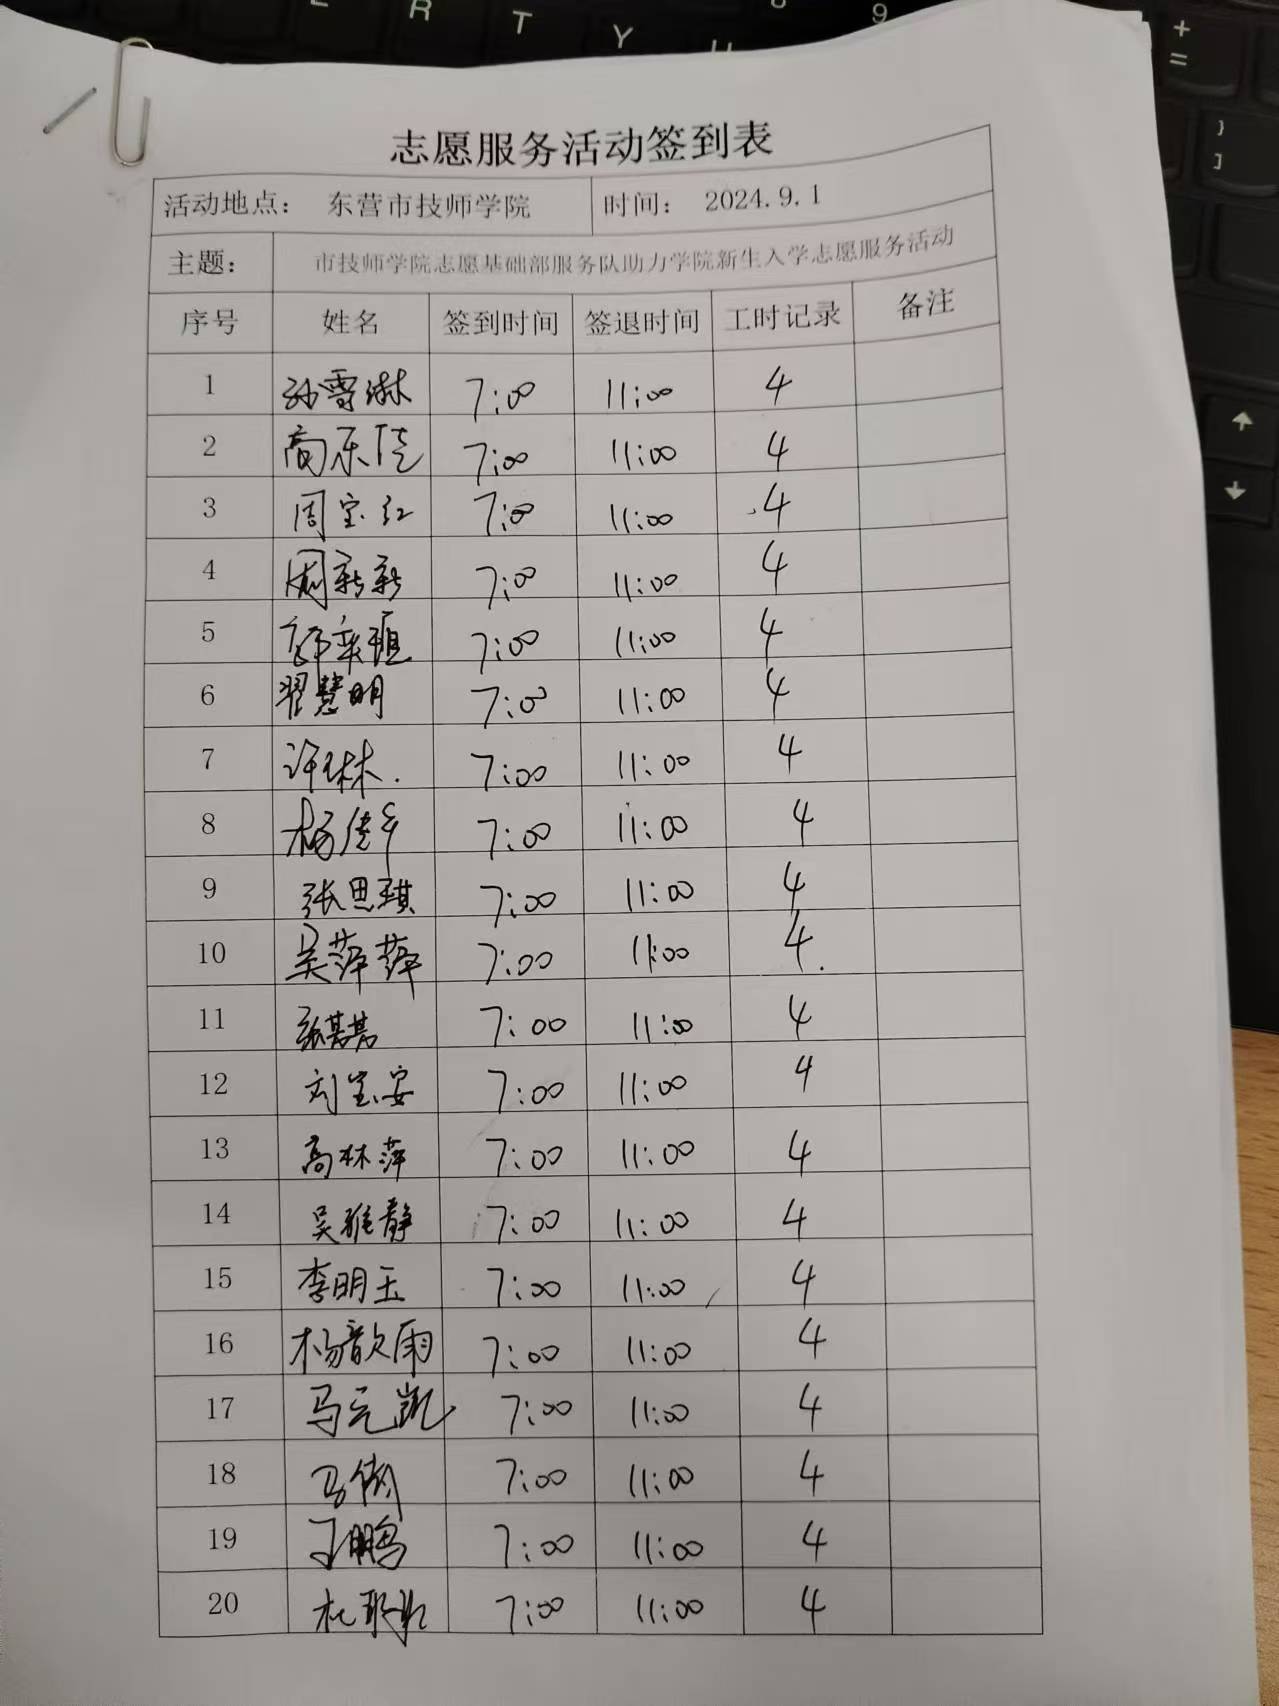 E R T Y U 8 9 + =
} ]
志愿服务活动签到表
活动地点： 东营市技师学院 时间： 2024.9.1
主题： 市技师学院志愿基础部服务队助力学院新生入学志愿服务活动
序号 姓名 签到时间 签退时间 工时记录 备注
1 孙雪琳 7:00 11:00 4
2 高乐佳 7:00 11:00 4
3 周宝红 7:00 11:00 4
4 周新新 7:00 11:00 4
5 7:00 11:00 4
6 翟慧明 7:00 11:00 4
7 许琳 7:00 11:00 4
8 杨佳 7:00 11:00 4
9 张思琪 7:00 11:00 4
10 吴萍萍 7:00 11:00 4
11 张茜茜 7:00 11:00 4
12 刘宝安 7:00 11:00 4
13 高林萍 7:00 11:00 4
14 吴雅静 7:00 11:00 4
15 李明玉 7:00 11:00 4
16 杨歆雨 7:00 11:00 4
17 马元凯 7:00 11:00 4
18 马倩 7:00 11:00 4
19 王鹏 7:00 11:00 4
20 杜 7:00 11:00 4